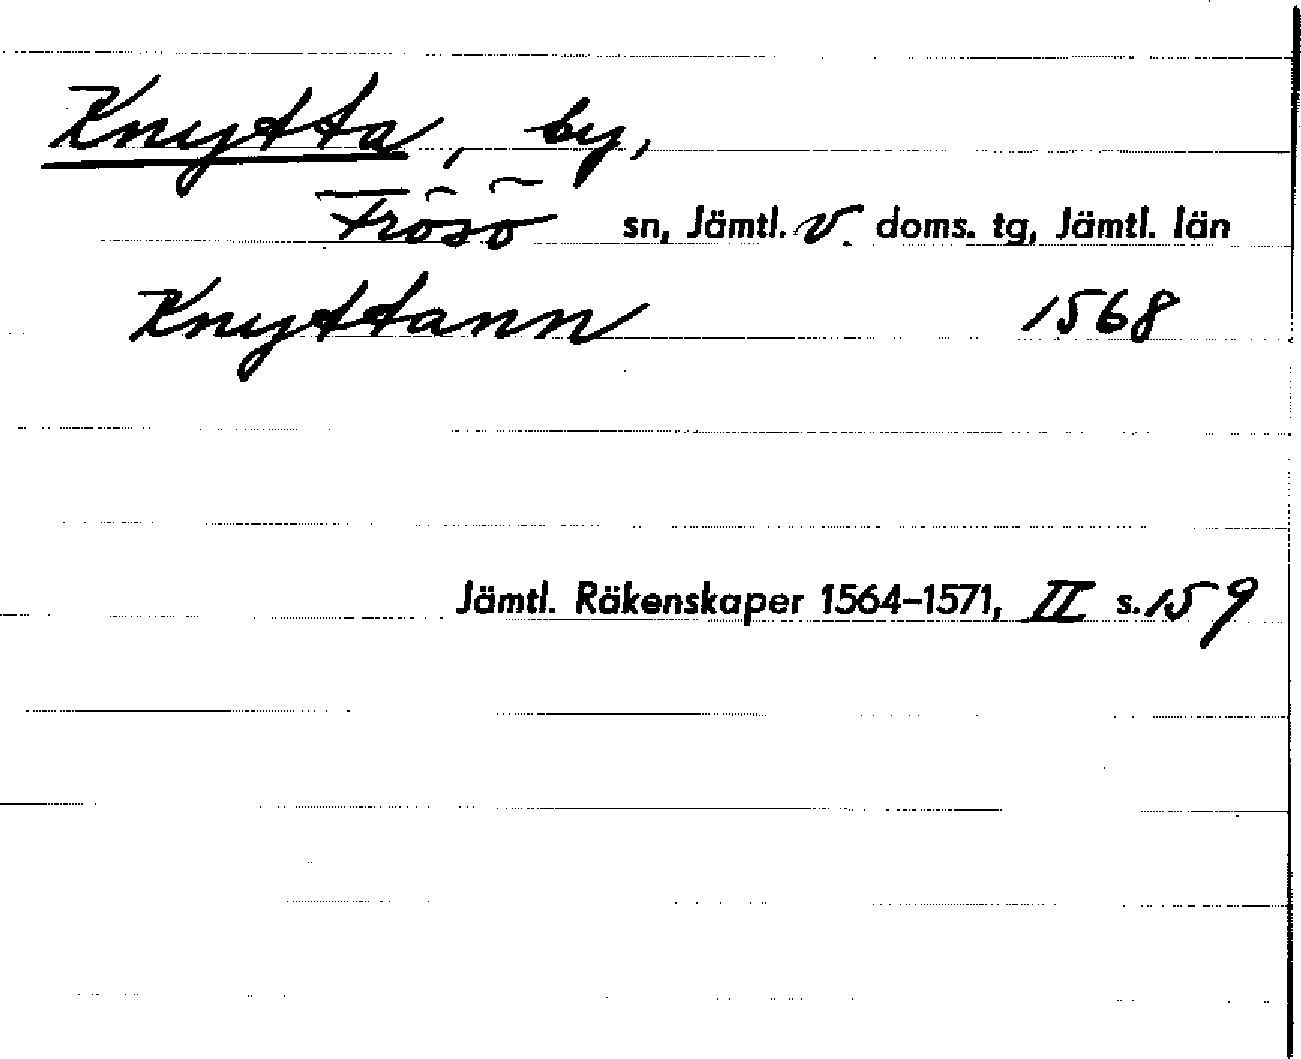 Knytta, by,
Frösö sn, Jämtl. V. doms. tg, Jämtl. län
Knyttann 1568
Jämtl. Räkenskaper 1564-1571, II s. 159